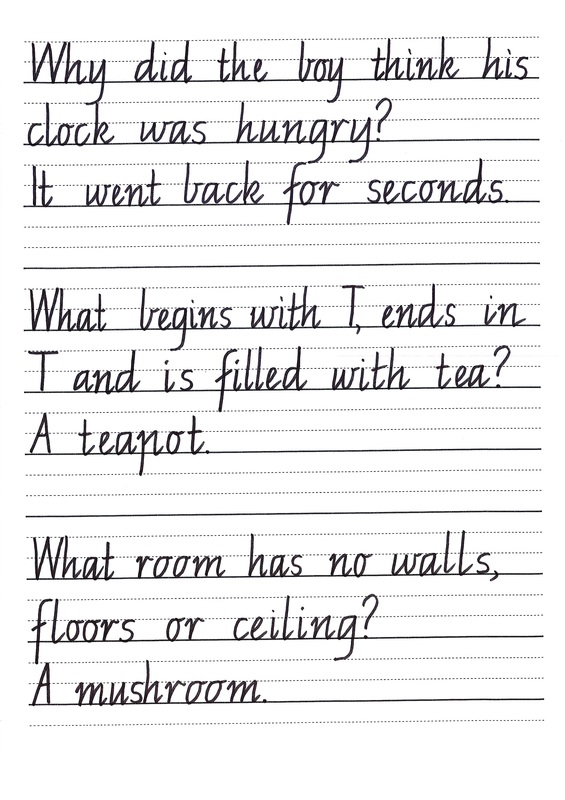 Why did the boy think his
clock was hungry?
It went back for seconds.
What begins with T, ends in
T and is filled with tea?
A teapot.
What room has no walls,
floors or ceiling?
A mushroom.